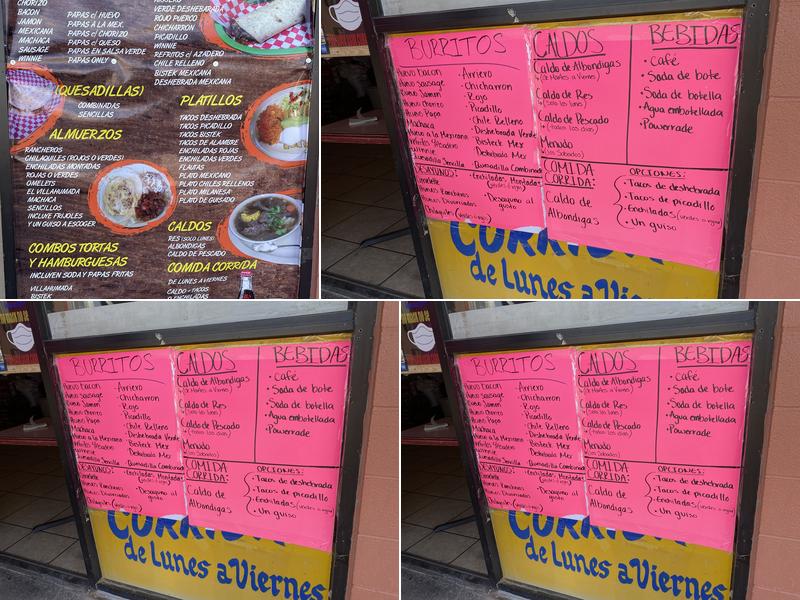 CHORIZO
BACON
JAMON
MEXICANA
MACHACA
SAUSAGE
WINNIE
PAPAS c/ HUEVO
PAPAS A LA MEX.
PAPAS c/ CHORIZO
PAPAS c/ QUESO
PAPAS EN SALSA VERDE
PAPAS ONLY
VERDE DESHEBRADA
ROJO PUERCO
CHICHARRON
PICADILLO
WINNIE
REFRITOS c/ AZADERO
CHILE RELLENO
BISTEK MEXICANA
DESHEBRADA MEXICANA
(QUESADILLAS)
COMBINADAS
SENCILLAS
ALMUERZOS
RANCHEROS
CHILAQUILES (ROJOS O VERDES)
ENCHILADAS MONTADAS
ROJAS O VERDES
OMELETS
EL VILLAHUMADA
MACHACA
SENCILLOS
INCLUYE FRIJOLES
Y UN GUISO A ESCOGER
COMBOS TORTAS
Y HAMBURGUESAS
INCLUYEN SODA Y PAPAS FRITAS
VILLAHUMADA
BISTEK
PLATILLOS
TACOS DESHEBRADA
TACOS PICADILLO
TACOS BISTEK
TACOS DE ALAMBRE
ENCHILADAS ROJAS
ENCHILADAS VERDES
FLAUTAS
PLATO MEXICANO
PLATO CHILES RELLENOS
PLATO MILANESA
PLATO DE GUISADO
CALDOS
RES (SOLO LUNES)
ALBONDIGAS
CALDO DE PESCADO
COMIDA CORRIDA
DE LUNES A VIERNES
CALDO - TACOS
O ENCHILADAS
BURRITOS
Huevo Bacon
Huevo Sausage
Huevo Jamon
Huevo Chorizo
Huevo Papa
Machaca
Huevo a la Mexicana
Winnie
Quesadilla Sencilla
· Arriero
· Chicharron
· Rojo
· Picadillo
· Chile Relleno
· Deshebrada Verde
· Bisteck Mex
· Deshebrada Mex
· Quesadilla Combinada
DESAYUNOS:
Omelette
Huevos Rancheros
Huevos Divorciados
Chilaquiles (rojos-verdes)
· Enchiladas Montadas
(verdes o rojas)
· Desayuno al
gusto
CALDOS
Caldo de Albondigas
(de Martes a Viernes)
Caldo de Res
(solo los lunes)
Caldo de Pescado
(todos los dias)
Menudo
(los Sabados)
BEBIDAS
· Café
· Soda de bote
· Soda de botella
· Agua embotellada
· Powerrade
COMIDA
CORRIDA:
Caldo de
Albondigas
OPCIONES:
· Tacos de deshebrada
· Tacos de picadillo
· Enchiladas (verdes o rojas)
· Un guiso
CORRIDA
de Lunes a Viernes
BURRITOS
Huevo Bacon
Huevo Sausage
Huevo Jamon
Huevo Chorizo
Huevo Papa
Machaca
Huevo a la Mexicana
Winnie
Quesadilla Sencilla
· Arriero
· Chicharron
· Rojo
· Picadillo
· Chile Relleno
· Deshebrada Verde
· Bisteck Mex
· Deshebrada Mex
· Quesadilla Combinada
DESAYUNOS:
Omelette
Huevos Rancheros
Huevos Divorciados
Chilaquiles (rojos-verdes)
· Enchiladas Montadas
(verdes o rojas)
· Desayuno al
gusto
CALDOS
Caldo de Albondigas
(de Martes a Viernes)
Caldo de Res
(solo los lunes)
Caldo de Pescado
(todos los dias)
Menudo
(los Sabados)
BEBIDAS
· Café
· Soda de bote
· Soda de botella
· Agua embotellada
· Powerrade
COMIDA
CORRIDA:
Caldo de
Albondigas
OPCIONES:
· Tacos de deshebrada
· Tacos de picadillo
· Enchiladas (verdes o rojas)
· Un guiso
CORRIDA
de Lunes a Viernes
BURRITOS
Huevo Bacon
Huevo Sausage
Huevo Jamon
Huevo Chorizo
Huevo Papa
Machaca
Huevo a la Mexicana
Winnie
Quesadilla Sencilla
· Arriero
· Chicharron
· Rojo
· Picadillo
· Chile Relleno
· Deshebrada Verde
· Bisteck Mex
· Deshebrada Mex
· Quesadilla Combinada
DESAYUNOS:
Omelette
Huevos Rancheros
Huevos Divorciados
Chilaquiles (rojos-verdes)
· Enchiladas Montadas
(verdes o rojas)
· Desayuno al
gusto
CALDOS
Caldo de Albondigas
(de Martes a Viernes)
Caldo de Res
(solo los lunes)
Caldo de Pescado
(todos los dias)
Menudo
(los Sabados)
BEBIDAS
· Café
· Soda de bote
· Soda de botella
· Agua embotellada
· Powerrade
COMIDA
CORRIDA:
Caldo de
Albondigas
OPCIONES:
· Tacos de deshebrada
· Tacos de picadillo
· Enchiladas (verdes o rojas)
· Un guiso
CORRIDA
de Lunes a Viernes